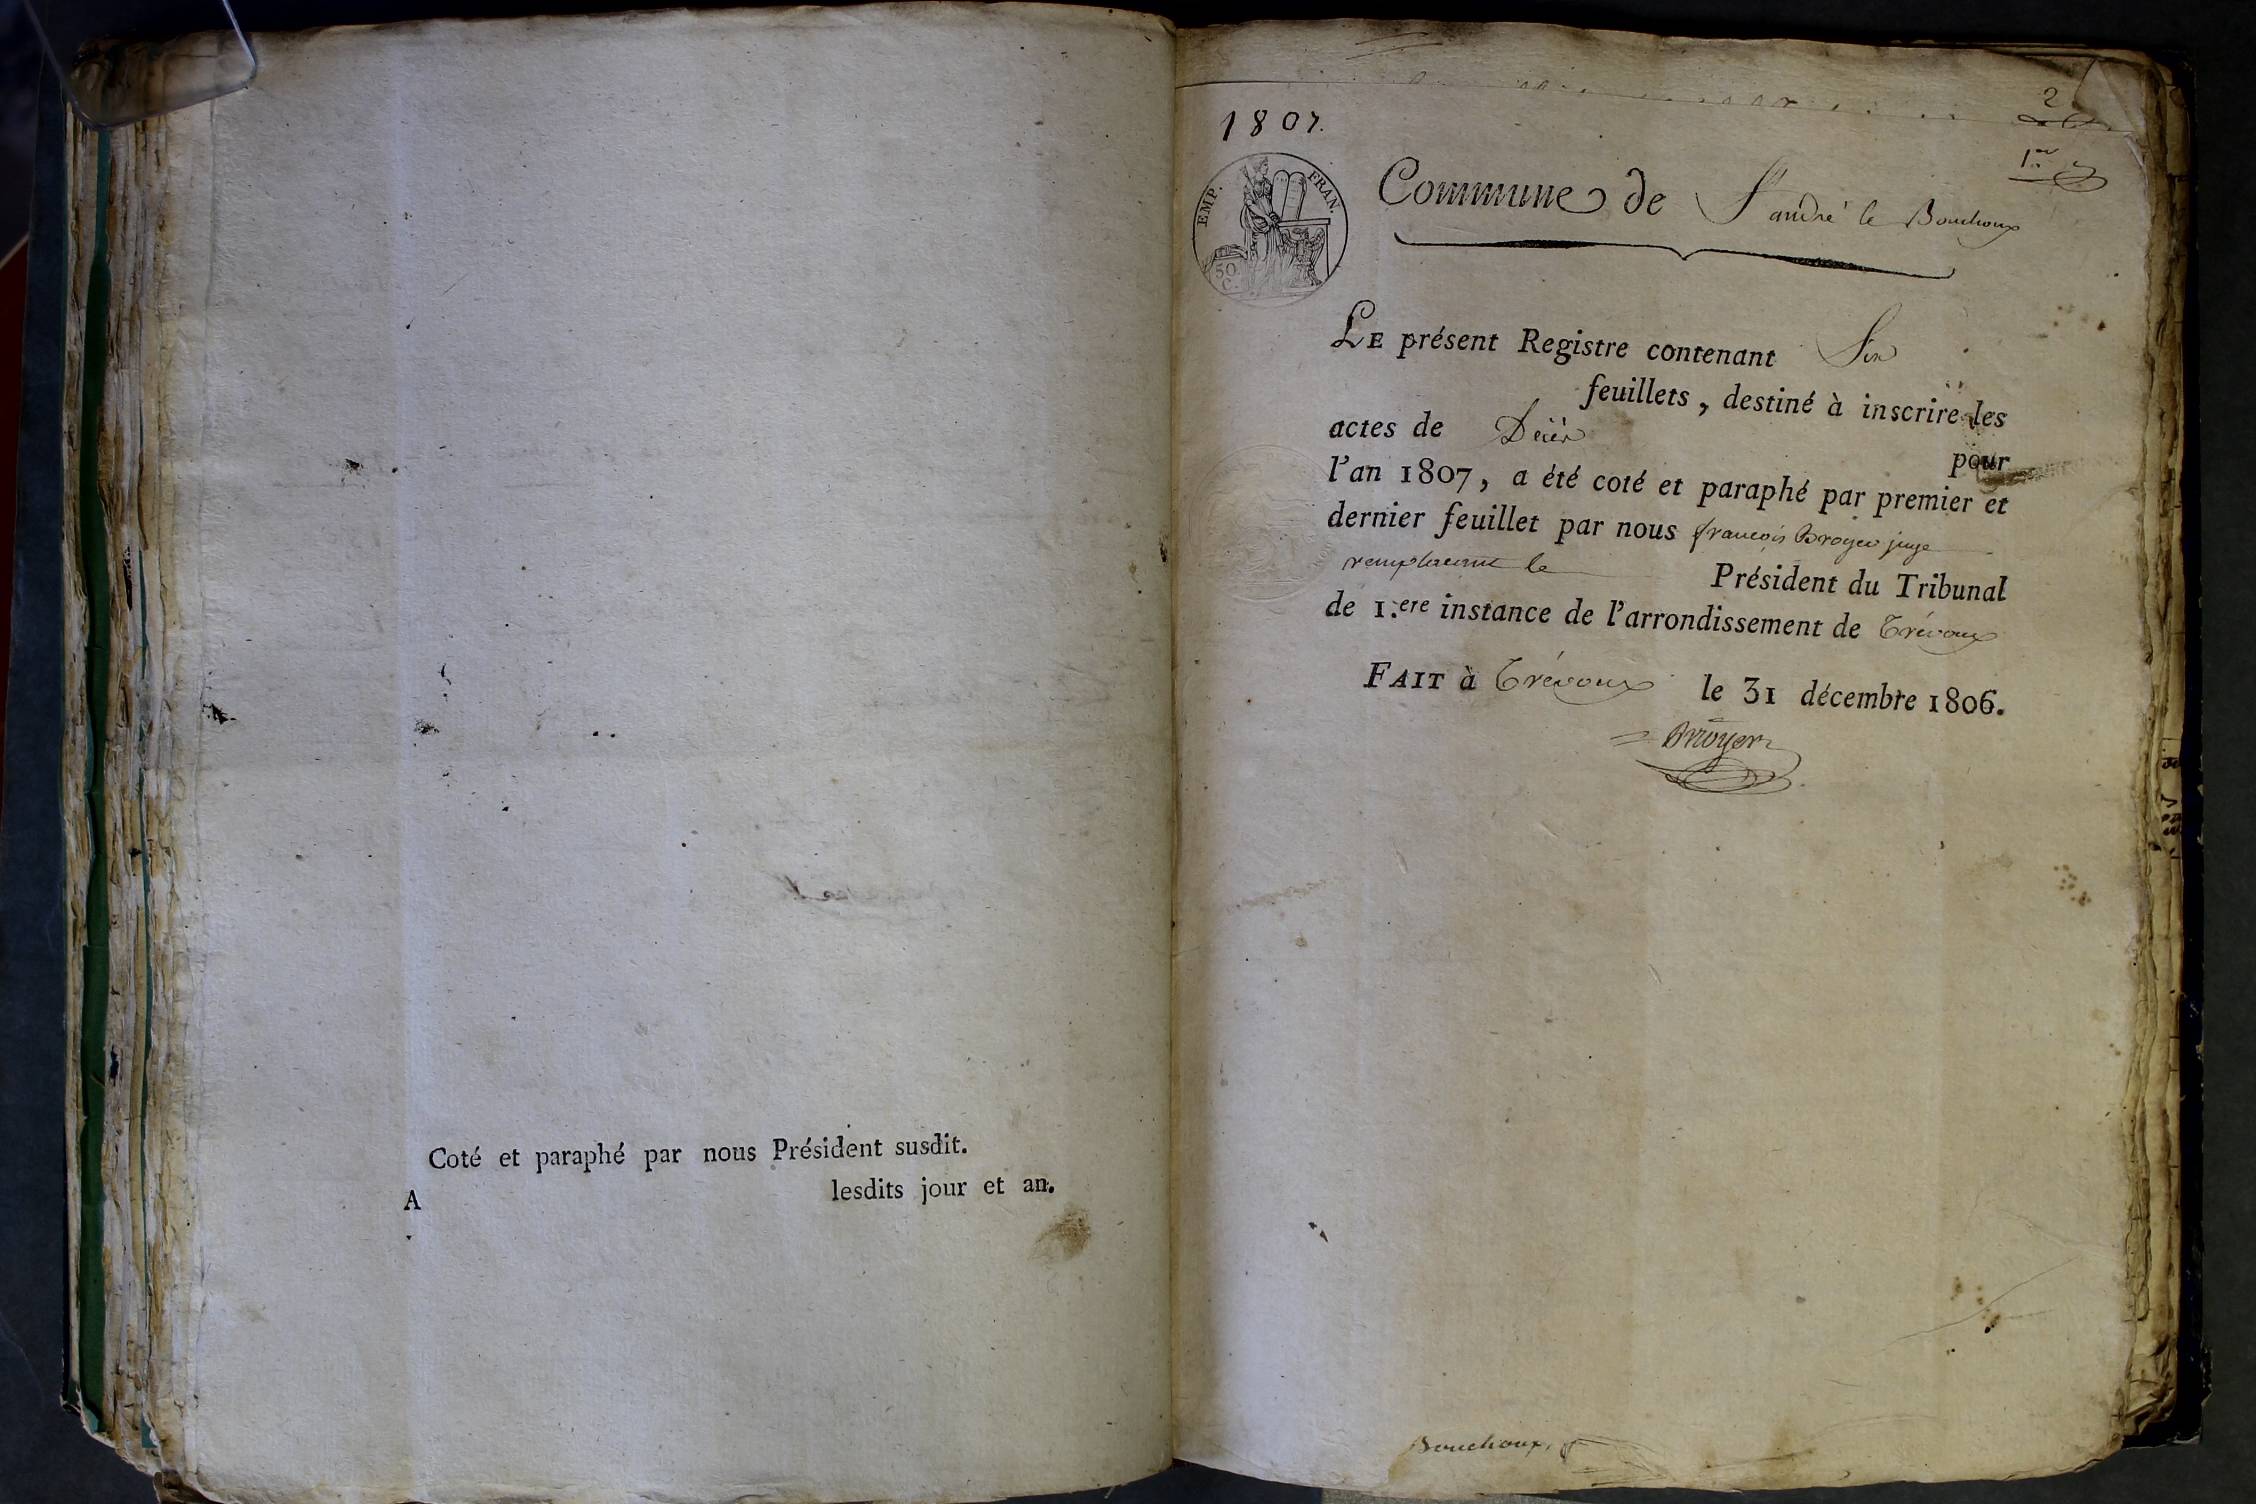 Coté et paraphé par nous Président susdit.
A lesdits jour et an.
2
1807.
1er
EMP. FRAN.
50 C.
Commune de St andré le Bouchoux
LE présent Registre contenant Six
feuillets, destiné à inscrire les
actes de Décès
pour
l'an 1807, a été coté et paraphé par premier et
dernier feuillet par nous françois Broyer juge
remplacant le Président du Tribunal
de 1.ere instance de l'arrondissement de Trévoux
FAIT à Trévoux le 31 décembre 1806.
Broyer
Bouchoux.